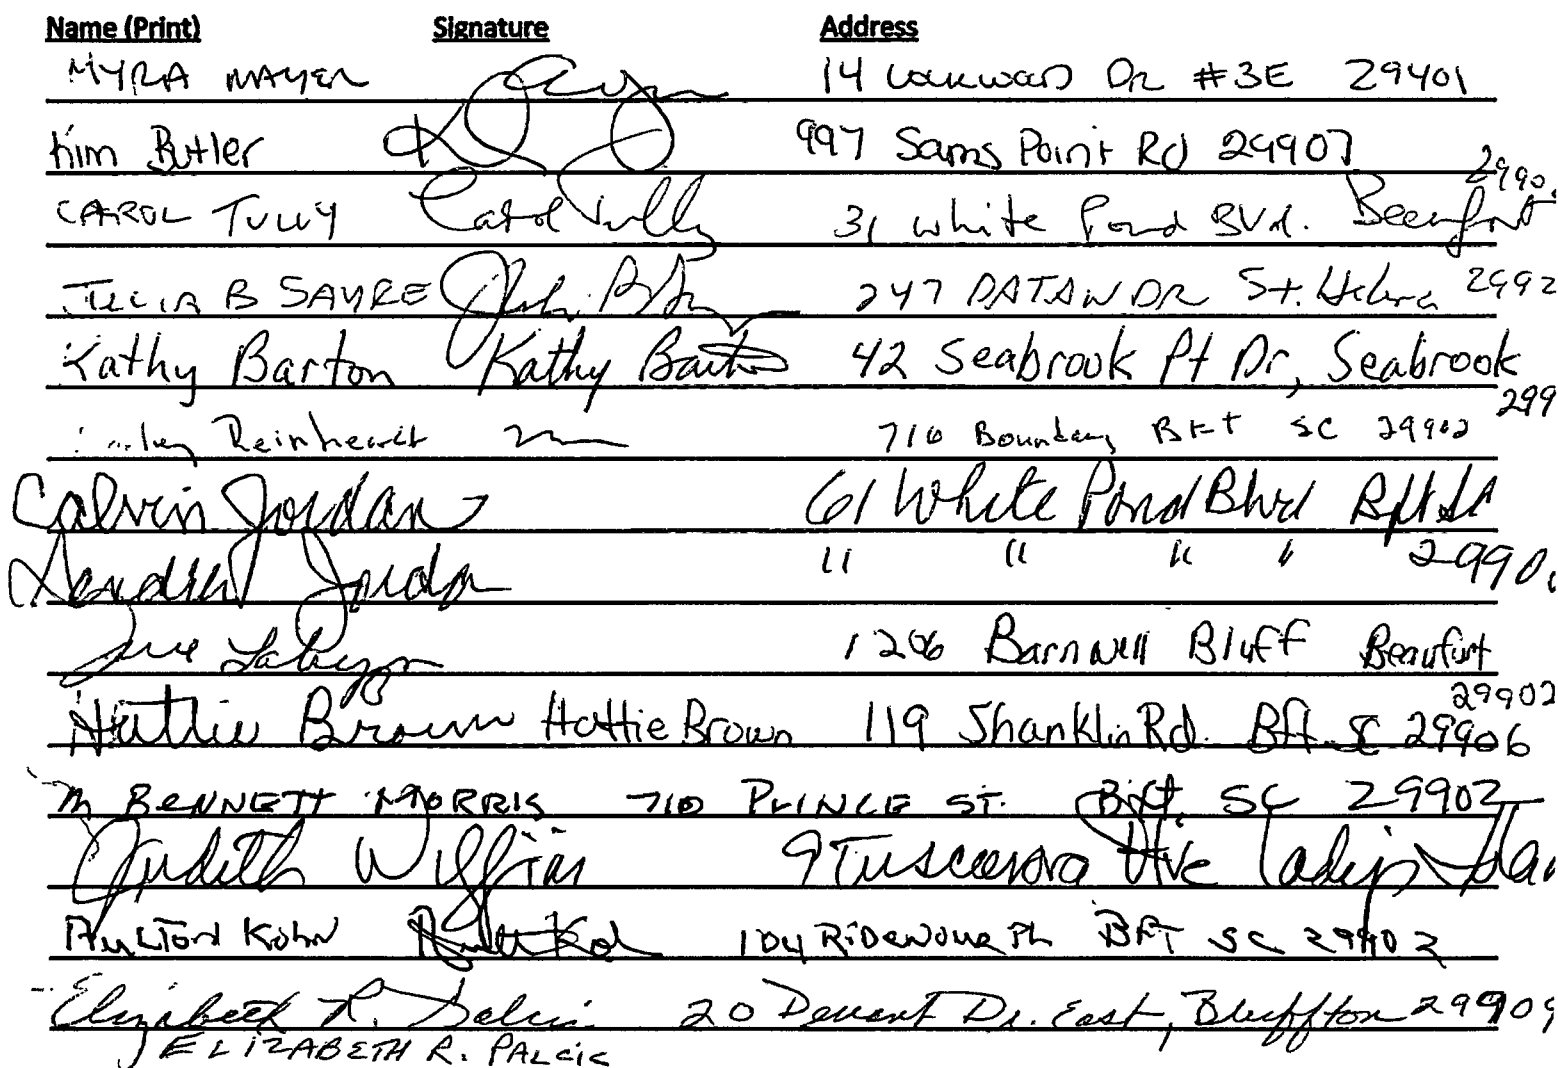 Name (Print) Signature Address
MYRA MAYER 14 Lockwood Dr #3E 29401
Kim Butler 997 Sams Point Rd 29907
CAROL TULLY Carol Tully 31 White Pond BVd. Beaufort 2990
JULIA B SAYRE 247 DATAW DR St. Helena 2992
Kathy Barton Kathy Barton 42 Seabrook Pt Dr, Seabrook
299
Reinheardt 710 Boundary BFT SC 29902
Calvin Jordan 61 White Pond Blvd Bft SC
Jordan " " " " 2990
1206 Barnwell Bluff Beaufort
29902
Hattie Brown Hattie Brown 119 Shanklin Rd. Bft SC 29906
M BENNETT MORRIS 710 PRINCE ST. Bft. SC 29902
Judith 9 Tuscarora Ave Ladys Islan
KOHN 104 RIDENOUR BFT SC 29902
Elizabeth R. 20 Devant Dr. East, Bluffton 29909
ELIZABETH R. PALCIC